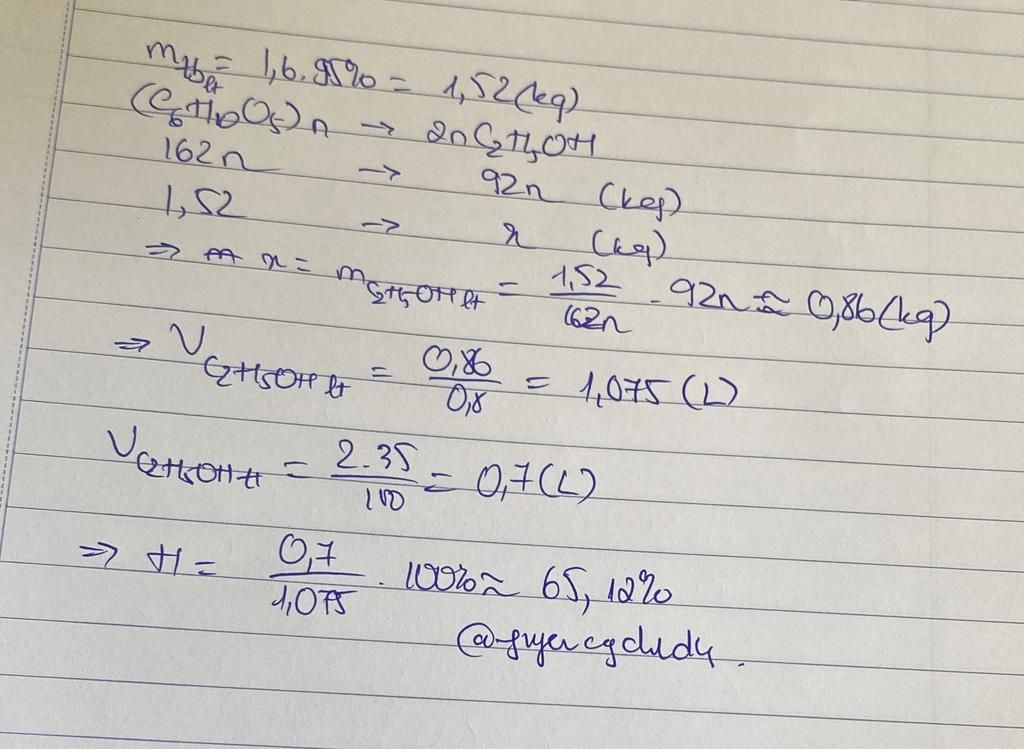 m_tb lt = 1,6.95% = 1,52 (kg)
(C6H10O5)n → 2nC2H5OH
162n → 92n (kg)
1,52 → x (kg)
⇒ x = m_C2H5OH lt = 1,52/162n . 92n ≈ 0,86 (kg)
⇒ V_C2H5OH lt = 0,86/0,8 = 1,075 (L)
V_C2H5OH tt = 2.35/100 = 0,7 (L)
⇒ H = 0,7/1,075 . 100% ≈ 65,12%